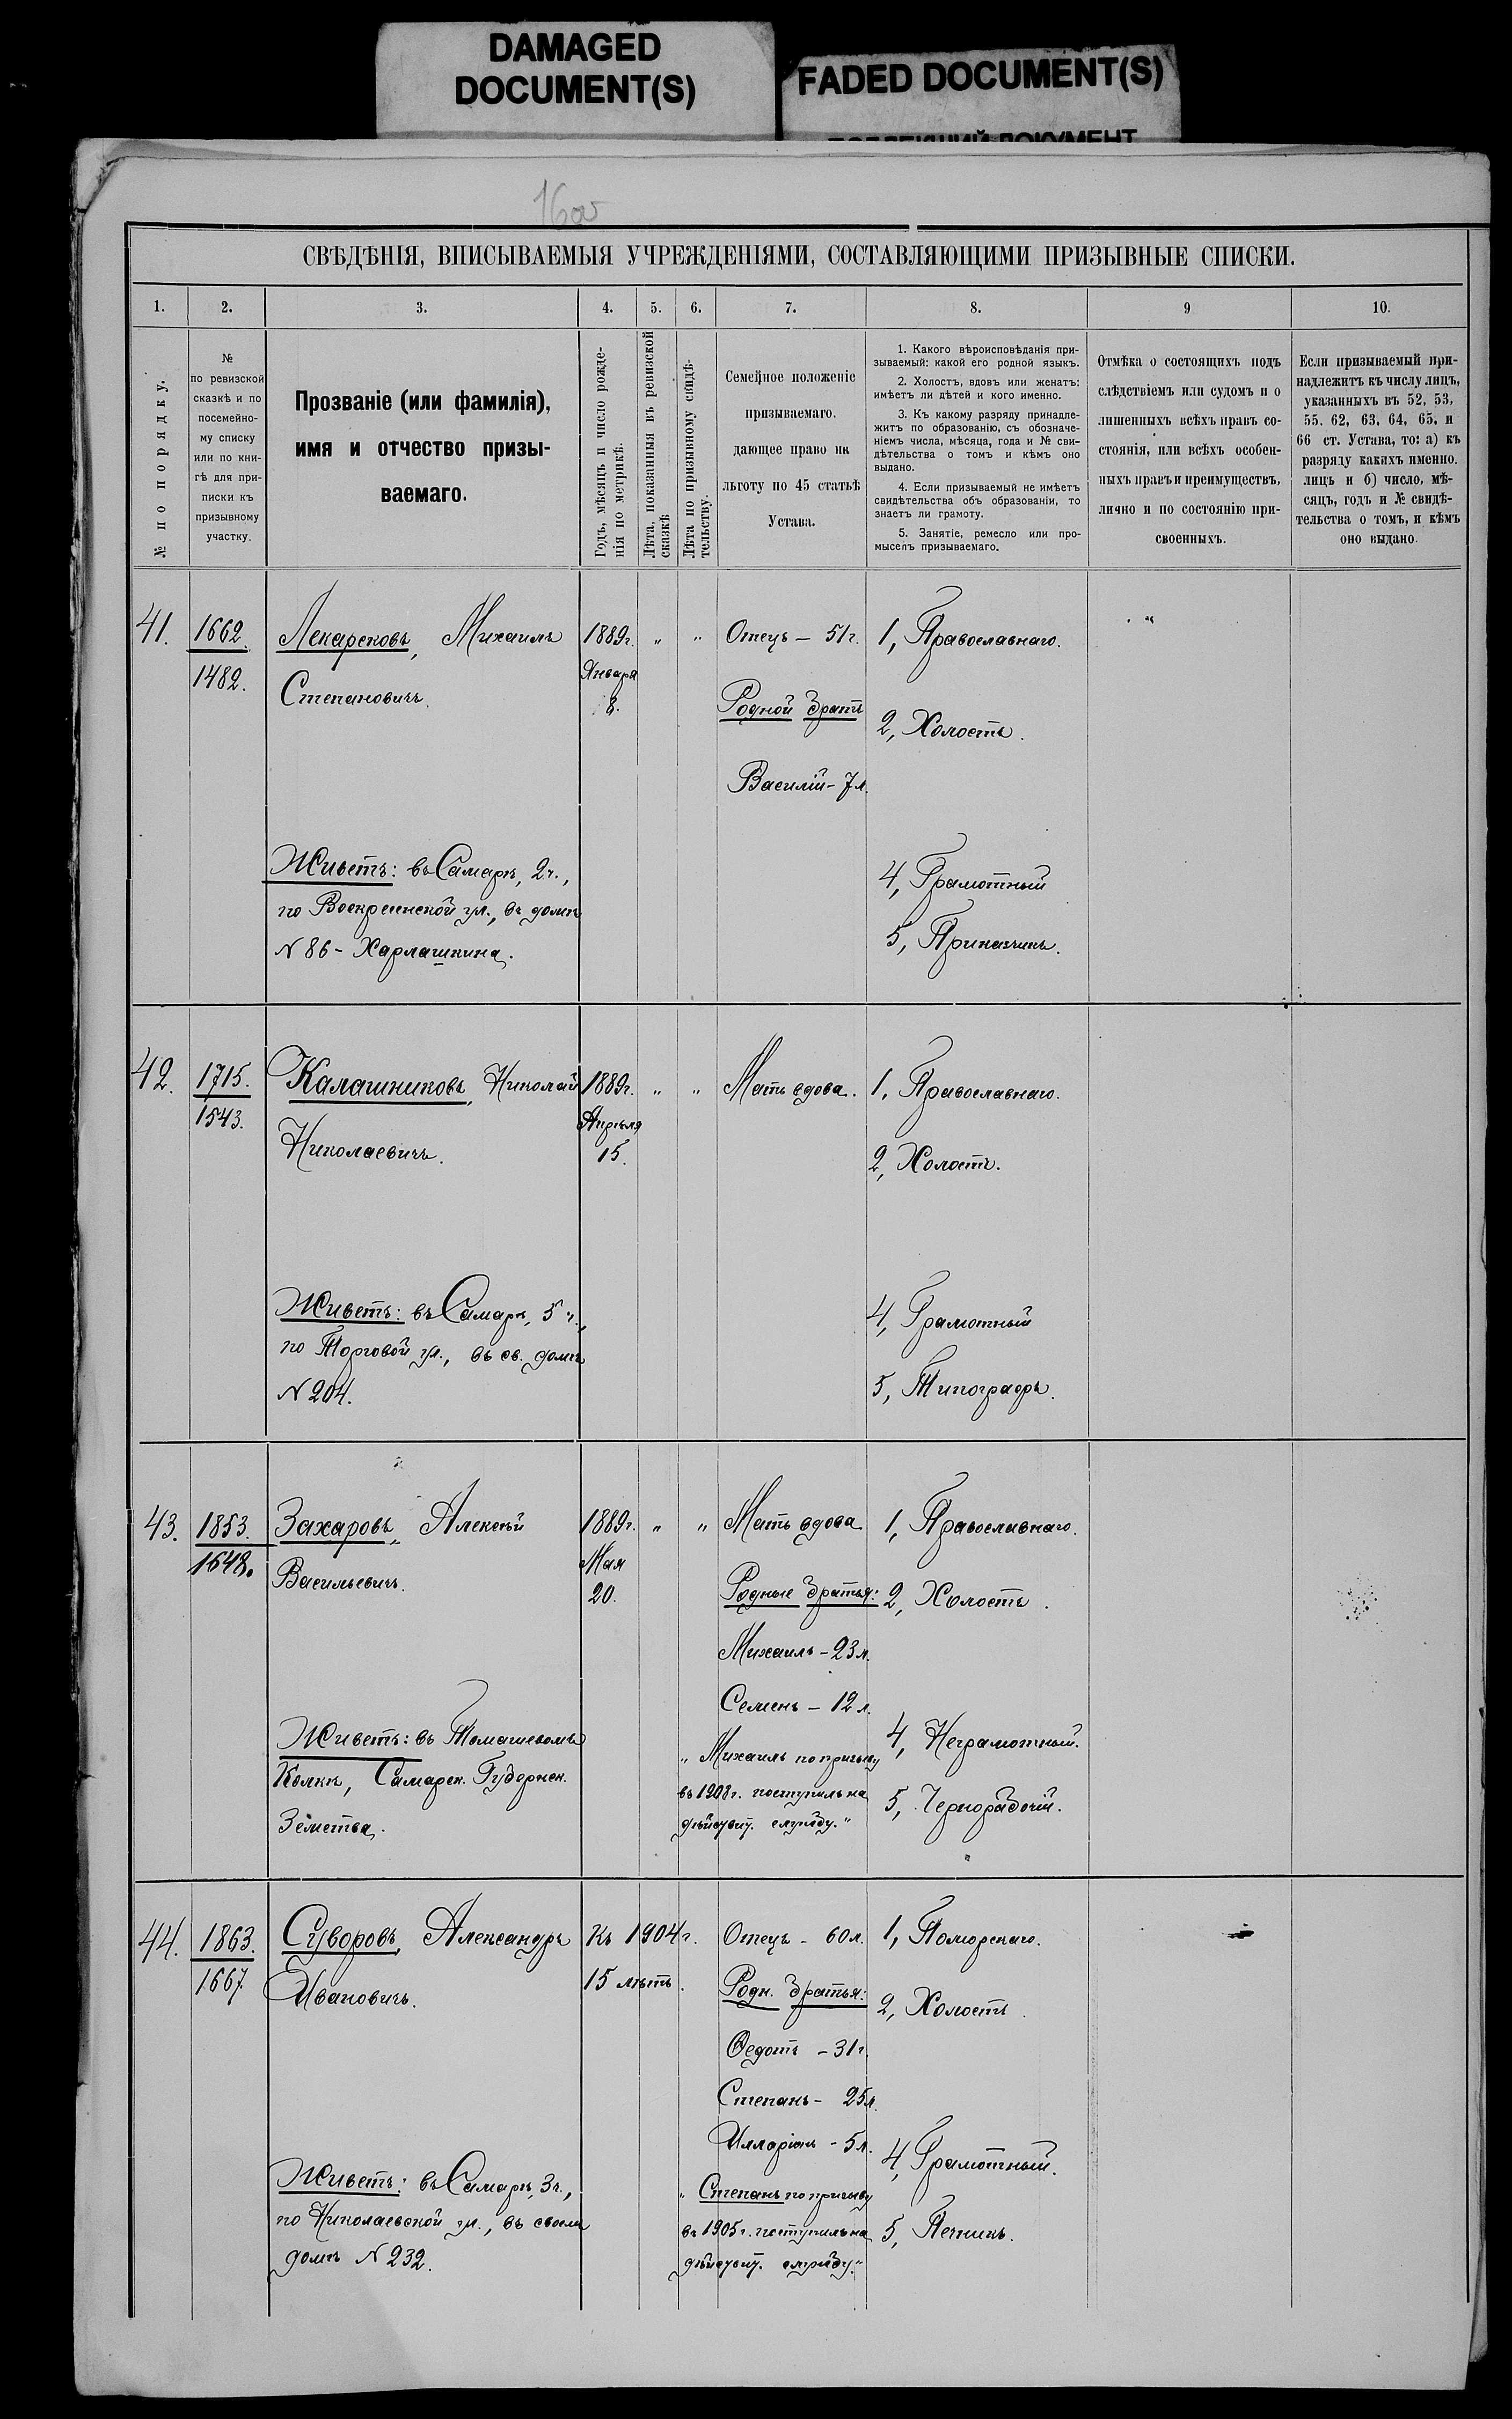 DAMAGED
DOCUMENT(S)
FADED DOCUMENT(S)
16об
СВѢДѢНІЯ, ВПИСЫВАЕМЫЯ УЧРЕЖДЕНІЯМИ, СОСТАВЛЯЮЩИМИ ПРИЗЫВНЫЕ СПИСКИ.
1.
2.
3.
4.
5.
6.
7.
8.
9
10.
№ по порядку.
№
по ревизской
сказкѣ и по
посемейно-
му списку
или по кни-
гѣ для при-
писки къ
призывному
участку.
Прозваніе (или фамилія),
имя и отчество призы-
ваемаго.
Годъ, мѣсяцъ и число рожде-
нія по метрикѣ.
Лѣта, показанныя въ ревизской
сказкѣ
Лѣта по призывному свидѣ-
тельству.
Семейное положеніе
призываемаго,
дающее право на
льготу по 45 статьѣ
Устава.
1. Какого вѣроисповѣданія при-
зываемый: какой его родной языкъ.
2. Холостъ, вдовъ или женатъ:
имѣетъ ли дѣтей и кого именно.
3. Къ какому разряду принадле-
житъ по образованію, съ обозначе-
ніемъ числа, мѣсяца, года и № сви-
дѣтельства о томъ и кѣмъ оно
выдано.
4. Если призываемый не имѣетъ
свидѣтельства объ образованіи, то
знаетъ ли грамоту.
5. Занятіе, ремесло или про-
мыселъ призываемаго.
Отмѣка о состоящихъ подъ
слѣдствіемъ или судомъ и о
лишенныхъ всѣхъ правъ со-
стоянія, или всѣхъ особен-
ныхъ правъ и преимуществъ,
лично и по состоянію при-
своенныхъ.
Если призываемый при-
надлежитъ къ числу лицъ,
указанныхъ въ 52, 53,
55. 62, 63, 64, 65, и
66 ст. Устава, то: а) къ
разряду какихъ именно
лицъ и б) число, мѣ-
сяцъ, годъ и № свидѣ-
тельства о томъ, и кѣмъ
оно выдано.
41.
1662.
1482.
Лекарековъ, Михаилъ
Степановичъ.
Живетъ: въ Самарѣ, 2 ч.,
по Воскресенской ул., въ домѣ
N 86 - Харлашкина.
1889 г.
Января
8.
"
"
Отецъ - 51 г.
Родной братъ
Василій - 7 л.
1, Православнаго.
2, Холостъ.
4, Грамотный
5, Приказчикъ.
"
42.
1715.
1543.
Калашниковъ, Николай
Николаевичъ.
Живетъ: въ Самарѣ, 5 ч.,
по Торговой ул., въ св. домѣ
N 204.
1889 г.
Апрѣля
15.
"
"
Мать вдова.
1, Православнаго.
2, Холостъ.
4, Грамотный
5, Типографъ.
43.
1853.
1648.
Захаровъ, Алексѣй
Васильевичъ.
Живетъ: въ Томашевомъ
Колкѣ, Самарск. Губернск.
Земства.
1889 г.
Мая
20.
"
"
Мать вдова
Родные братья:
Михаилъ - 23 л.
Семенъ - 12 л.
" Михаилъ по призыву
въ 1908 г. поступилъ на
дѣйствит. службу."
1, Православнаго.
2, Холостъ.
4, Неграмотный.
5, Чернорабочій.
44.
1863.
1667.
Суворовъ, Александръ
Ивановичъ.
Живетъ: въ Самарѣ, 3 ч.,
по Николаевской ул., въ своемъ
домѣ N 232.
Къ 1904 г.
15 лѣтъ.
Отецъ - 60 л.
Родн. братья:
Ѳедотъ - 31 г.
Степанъ - 25 л.
Илларіонъ - 5 л.
" Степанъ по призыву
въ 1905 г. поступилъ на
дѣйствит. службу."
1, Поморскаго.
2, Холостъ.
4, Грамотный.
5, Печникъ.